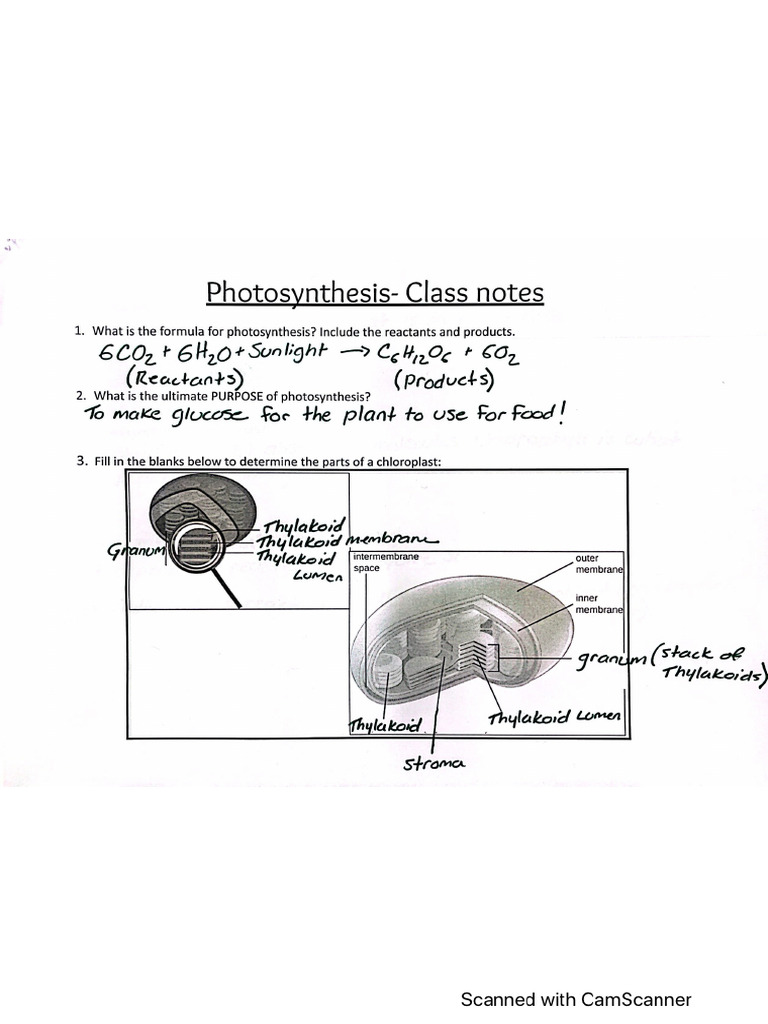 Photosynthesis- Class notes
1. What is the formula for photosynthesis? Include the reactants and products.
6CO₂ + 6H₂O + Sunlight → C₆H₁₂O₆ + 6O₂
(Reactants) (Products)
2. What is the ultimate PURPOSE of photosynthesis?
To make glucose for the plant to use for food!
3. Fill in the blanks below to determine the parts of a chloroplast:
Thylakoid
Thylakoid membrane
Granum
Thylakoid
Lumen
intermembrane
space
outer
membrane
inner
membrane
granum (stack of
Thylakoids)
Thylakoid
Thylakoid Lumen
stroma
Scanned with CamScanner